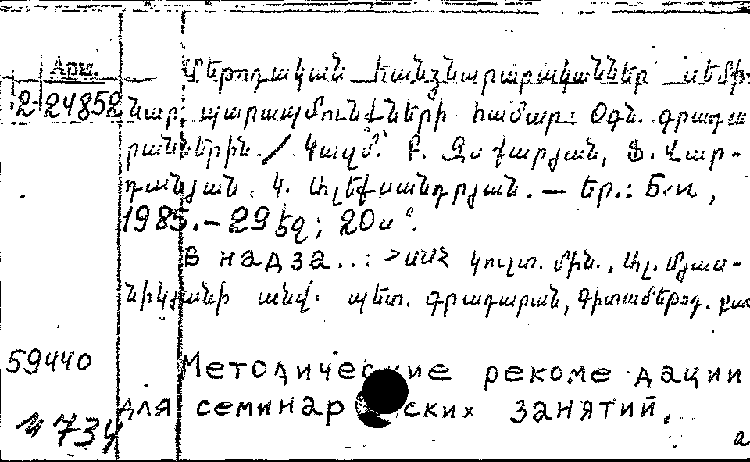 Արա. Մեթոդական հանձնարարականներ սեմի-
2-24852 նար պարապմունքների համար: Օգն. գրադա-
րաններին / Կազմ. Ք. Զաքարյան, Ֆ. Վար-
դանյան, Կ. Ալեքսանդրյան. — Եր.: Բ.ս.,
1985. — 29 էջ; 20 ս
В надза..: ՀՍՍՀ կուլտ. մին., Ալ. Մյաս-
նիկյանի անվ. պետ. գրադարան, Գիտամեթոդ.
59440 Методические рекоме дации
для семинар ских занятий.
734
а